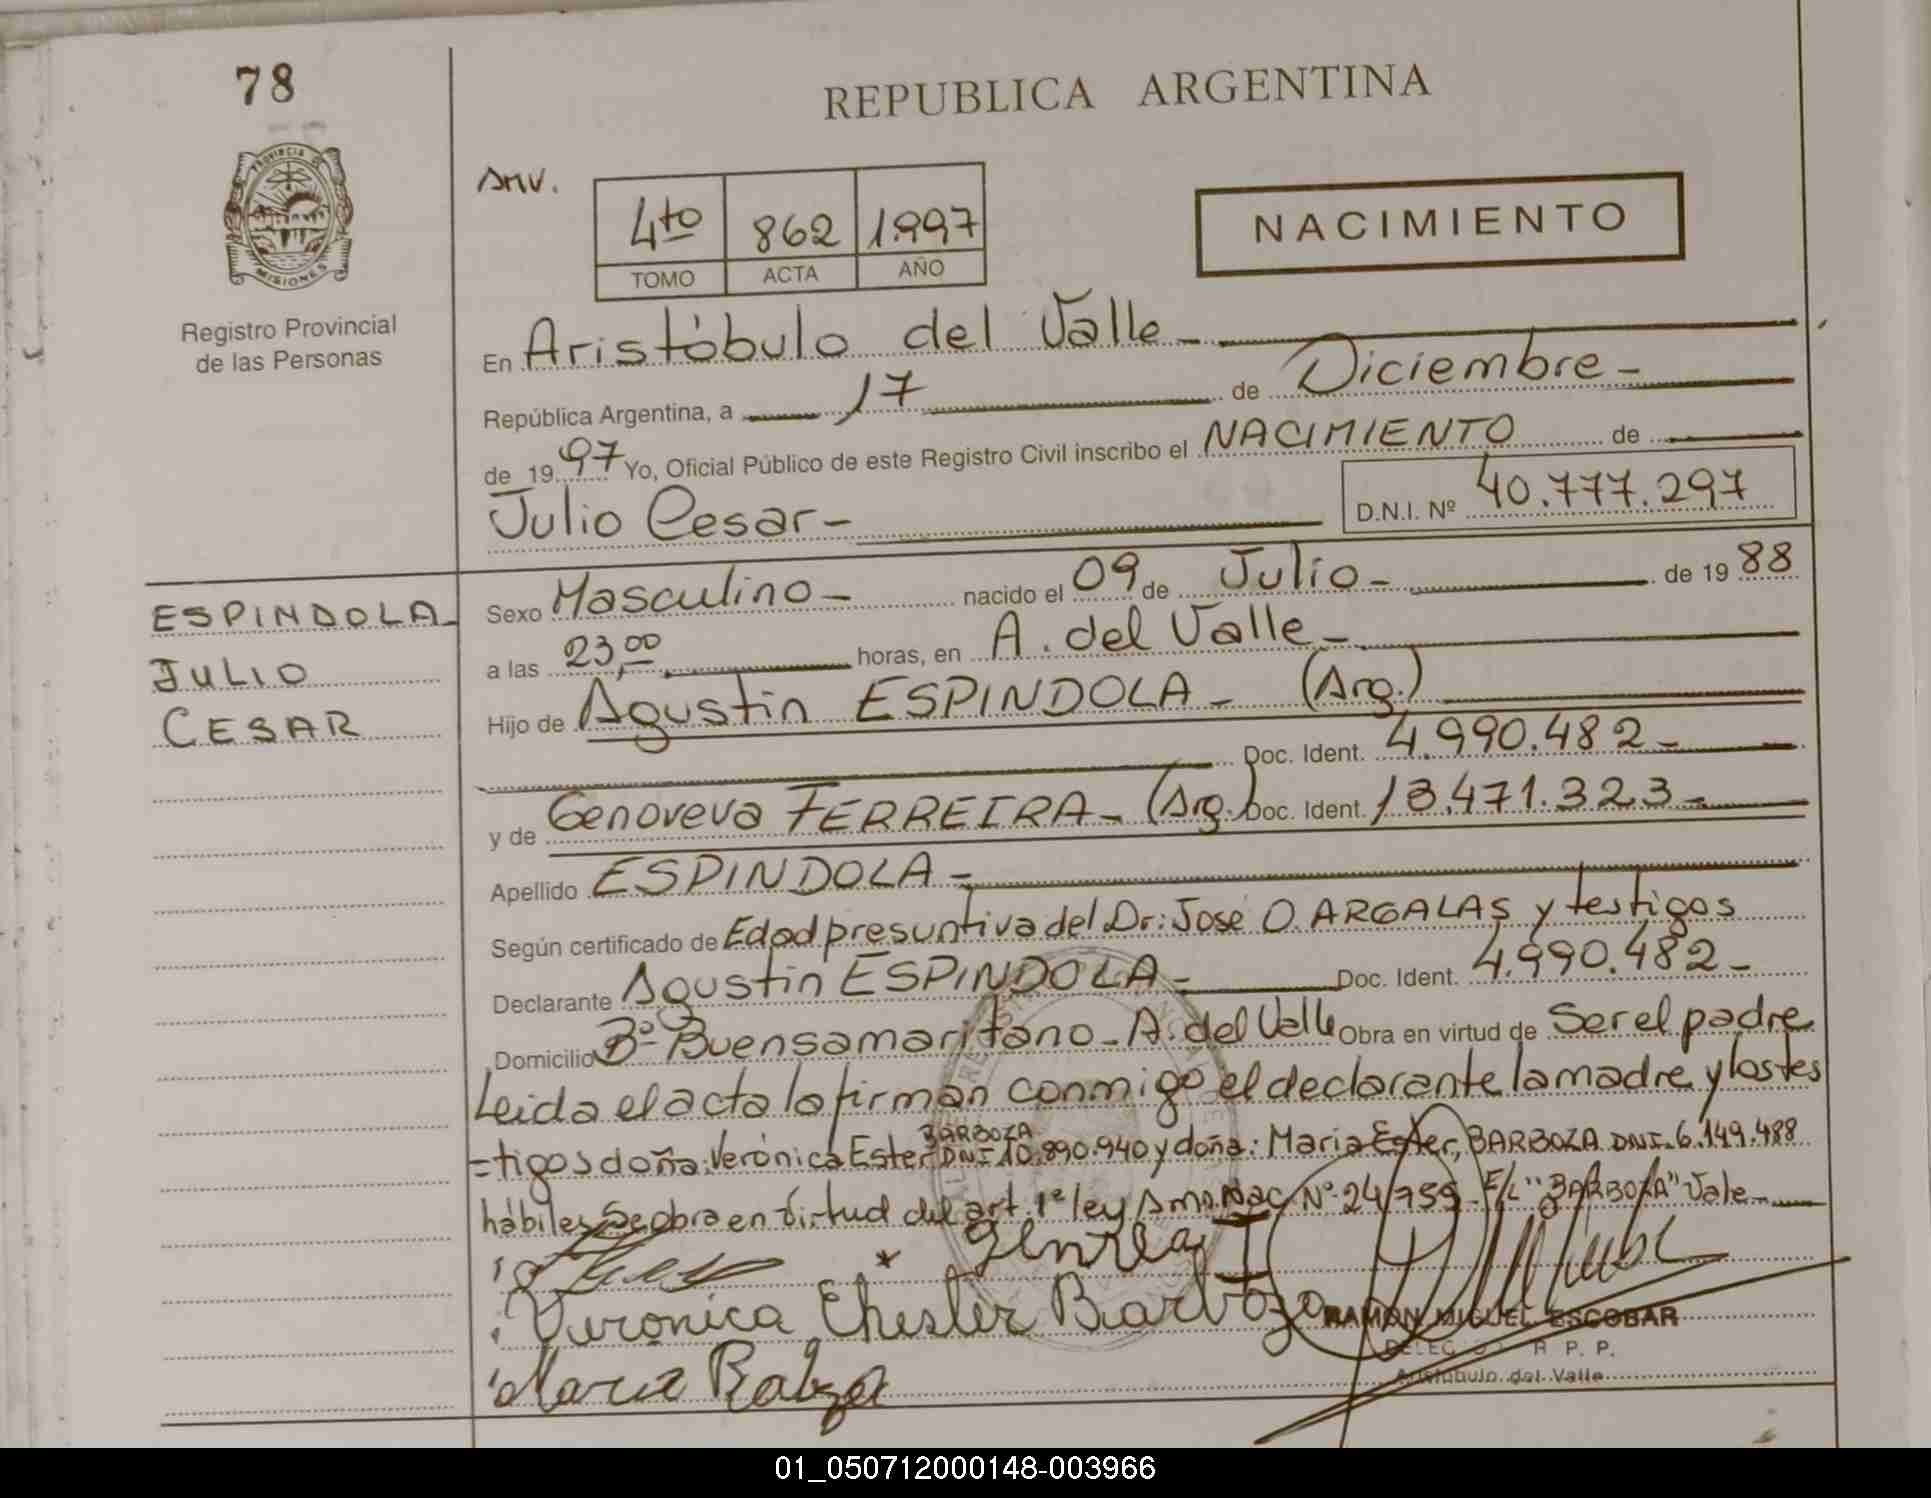 78
REPUBLICA ARGENTINA
PROVINCIA DE
MISIONES
Registro Provincial
de las Personas
4to 862 1.997
TOMO ACTA AÑO
NACIMIENTO
En Aristóbulo del Valle
República Argentina, a 17 de Diciembre
de 1997 Yo, Oficial Público de este Registro Civil inscribo el NACIMIENTO de
Julio Cesar
D.N.I. Nº 40.777.297
ESPINDOLA
JULIO
CESAR
Sexo Masculino nacido el 09 de Julio de 1988
a las 23,00 horas, en A. del Valle
Hijo de Agustin ESPINDOLA (Arg.)
Doc. Ident. 4.990.482
y de Genoveva FERREIRA (Arg.) Doc. Ident. 13.471.323
Apellido ESPINDOLA
Según certificado de Edad presuntiva del Dr: José O. ARGALAS y testigos
Declarante Agustin ESPINDOLA Doc. Ident. 4.990.482
Domicilio Bº Buensamaritano - A. del Valle Obra en virtud de Ser el padre
Leida el acta la firman conmigo el declarante la madre y los tes
=tigos doña: Verónica Ester BARBOZA DNI 10.890.940 y doña: Maria Ester, BARBOZA DNI. 6.149.488
hábiles Se obra en virtud del art. 1º ley Nac. Nº 24.755 E/L "BARBOZA" Vale
Veronica Ehester Barboza
RAMON MIGUEL ESCOBAR
R. P. P.
Aristóbulo del Valle
Maria
01_050712000148-003966